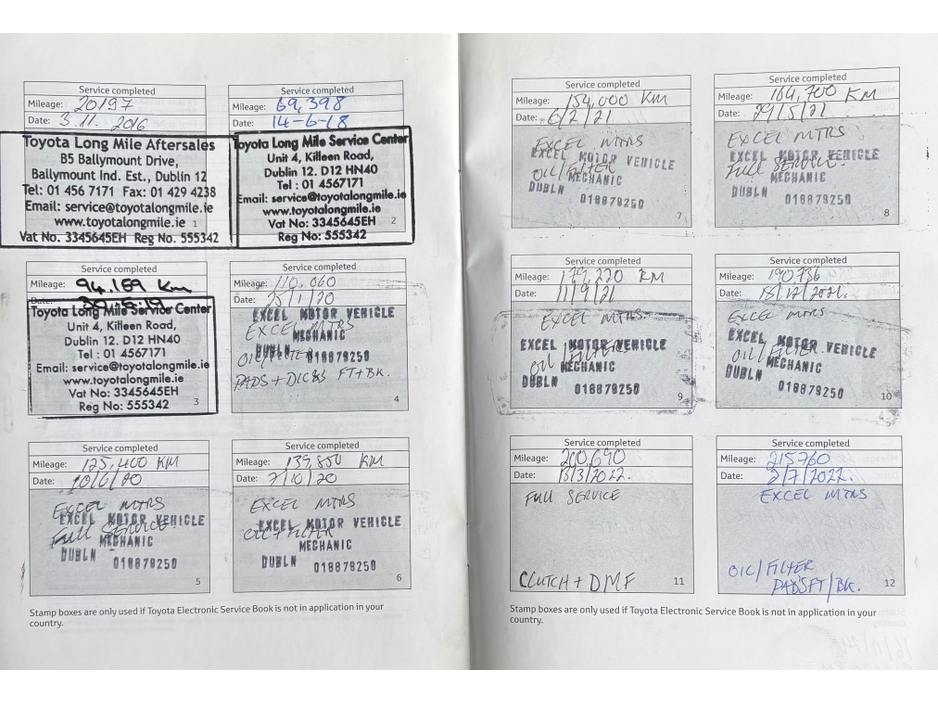 Service completed
Mileage: 20197
Date: 3.11.2016
Toyota Long Mile Aftersales
B5 Ballymount Drive,
Ballymount Ind. Est., Dublin 12
Tel: 01 456 7171 Fax: 01 429 4238
Email: service@toyotalongmile.ie
www.toyotalongmile.ie 1
Vat No. 3345645EH Reg No. 555342
Service completed
Mileage: 69,398
Date: 14-6-18
Toyota Long Mile Service Center
Unit 4, Killeen Road,
Dublin 12. D12 HN40
Tel : 01 4567171
Email: service@toyotalongmile.ie
www.toyotalongmile.ie
Vat No: 3345645EH 2
Reg No: 555342
Service completed
Mileage: 94,189 Km
Date:
Toyota Long Mile Service Center
Unit 4, Killeen Road,
Dublin 12. D12 HN40
Tel : 01 4567171
Email: service@toyotalongmile.ie
www.toyotalongmile.ie
Vat No: 3345645EH 3
Reg No: 555342
Service completed
Mileage: 110,060
Date: 25/1/20
EXCEL MOTOR VEHICLE
EXCEL MTRS
MECHANIC
OIL/FILTER
DUBLN 018879250
PADS + DICKS FT+BK.
4
Service completed
Mileage: 125,400 KM
Date: 10/6/20
EXCEL MTRS
EXCEL MOTOR VEHICLE
FULL SERVICE
MECHANIC
DUBLN 018879250
5
Service completed
Mileage: 139,850 KM
Date: 7/10/20
EXCEL MTRS
EXCEL MOTOR VEHICLE
OIL+FILTER
MECHANIC
DUBLN 018879250
6
Stamp boxes are only used if Toyota Electronic Service Book is not in application in your
country.
Service completed
Mileage: 154,000 KM
Date: 6/2/21
EXCEL MTRS
EXCEL MOTOR VEHICLE
OIL/FILTER
MECHANIC
DUBLN 018879250
7
Service completed
Mileage: 164,700 KM
Date: 29/5/21
EXCEL MTRS
EXCEL MOTOR VEHICLE
FULL SERVICE
MECHANIC
DUBLN 018879250
8
Service completed
Mileage: 179,220 KM
Date: 11/9/21
EXCEL MTRS.
EXCEL MOTOR VEHICLE
OIL/FILTER
MECHANIC
DUBLN 018879250
9
Service completed
Mileage: 190736
Date: 15/12/2021.
EXCEL MTRS
EXCEL MOTOR VEHICLE
OIL/FILTER
MECHANIC
DUBLN 018879250
10
Service completed
Mileage: 200,690
Date: 13/3/2022.
FULL SERVICE
CLUTCH + DMF
11
Service completed
Mileage: 215760
Date: 2/7/2022.
EXCEL MTRS
OIL/FILTER
PADSFT/BK.
12
Stamp boxes are only used if Toyota Electronic Service Book is not in application in your
country.